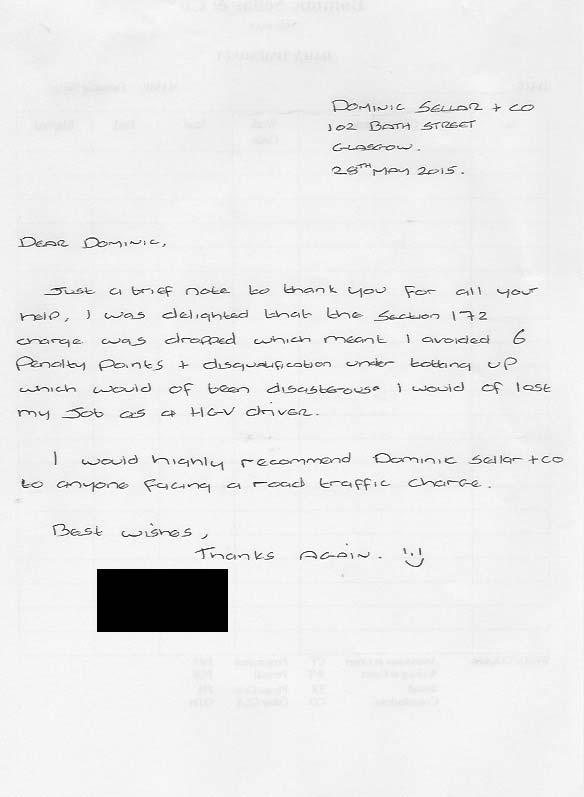 DOMINIC SELLAR + CO
102 BATH STREET
GLASGOW.
28TH MAY 2015.
DEAR DOMINIC,
Just a brief note to thank you for all your
help, I was delighted that the Section 172
charge was dropped which meant I avoided 6
Penalty Points + disqualification under totting up
which would of been disasterouse I would of lost
my Job as a HGV driver.
I would highly recommend Dominic Sellar + co
to anyone facing a road traffic charge.
Best wishes,
Thanks AGAIN.